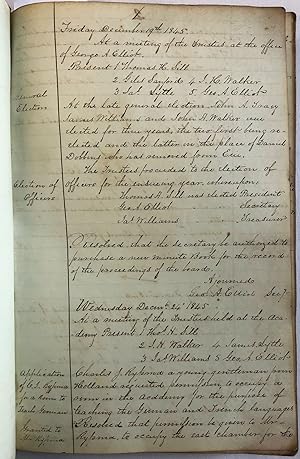 Friday December 19th 1845.
At a meeting of the Trustees at the office
of George A. Elliot.
Present 1 Thomas H. Sill
2 Giles Sanford 4 J. H. Walker
3 Jas Lytle 5 Geo. A. Elliot
General
Election
At the late general election John A. Tracy
James Williams and John H. Walker were
elected for three years, the two first being re-
elected and the latter in the place of Daniel
Dobbins who has removed from Erie.
Election of
Officers
The Trustees proceeded to the election of
officers for the ensuing year, whereupon
Thomas H. Sill was elected President
Geo. A. Elliot Secretary
Jas Williams Treasurer
Resolved that the Secretary be authorized to
purchase a new minute Book for the record
of the proceedings of the board.
Adjourned
Geo. A. Elliot Secy
Wednesday Decmr 24th 1845
At a meeting of the Trustees held at the Aca-
demy Present 1 Thos. H. Sill
2 J. H. Walker 4 James Lytle
3 Jas Williams 5 Geo A. Elliot
Application
of C. J.
for a room to
teach German
Granted to
Mr
Charles J. a young gentleman from
Holland requested permission to occupy a
room in the Academy for the purpose of
teaching the German and French languages
Resolved that permission be given to Mr.
to occupy the east chamber for the